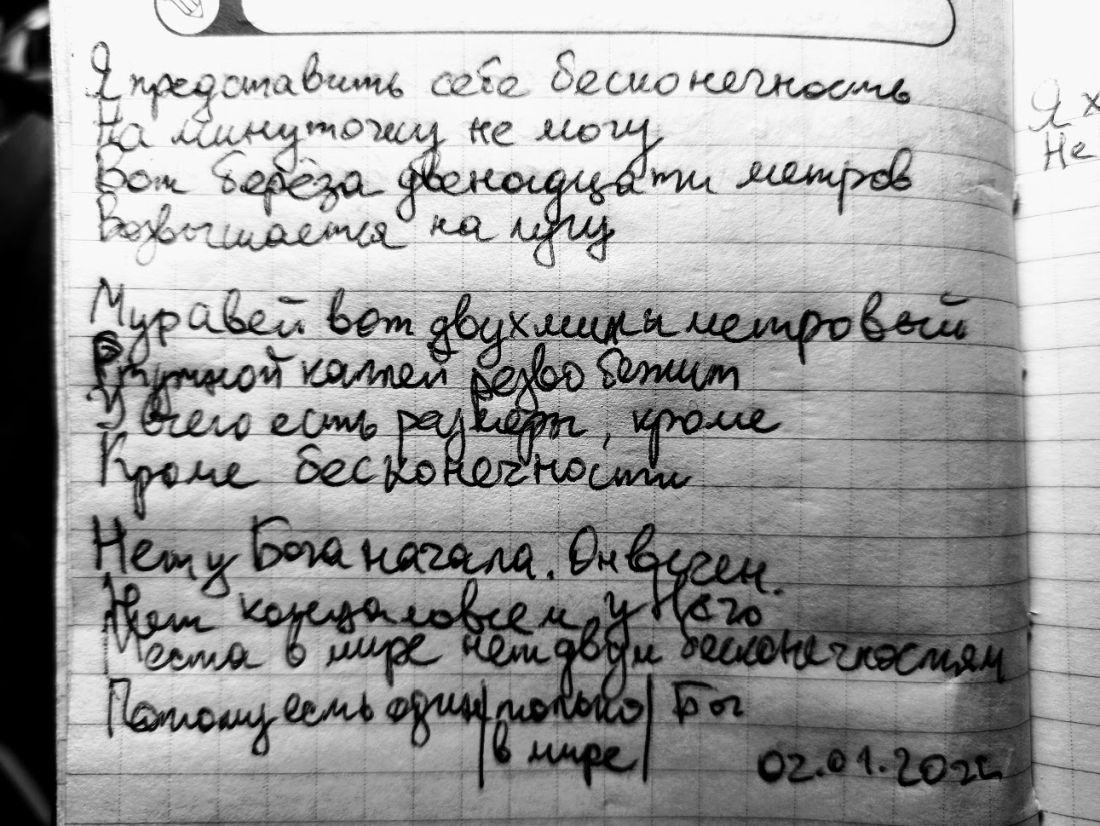 Я представить себе бесконечность
На минуточку не могу
Вот берёза двенадцати метров
Возвышается на лугу
Муравей вот двухмиллиметровый
каплей резво бежит
У всего есть размеры, кроме
Кроме бесконечности
Нет у Бога начала. Он вечен.
Нет конца совсем у Него
Места в мире нет двум бесконечностям
Потому есть один |только| Бог
|в мире|
02.01.2025
Я х
Не